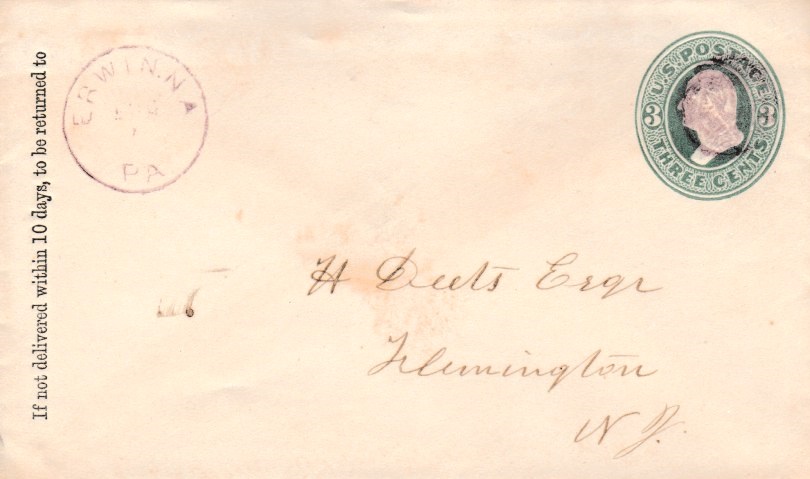 If not delivered within 10 days, to be returned to
ERWINNA
PA
U.S. POSTAGE
3 3
THREE CENTS
H Deets Esqr
Flemington
N J.